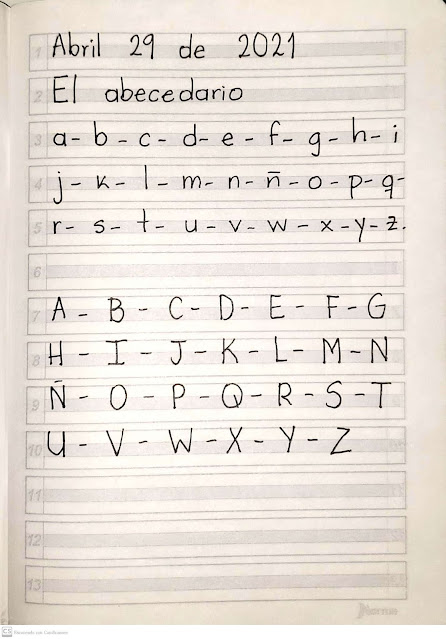 1 Abril 29 de 2021
2 El abecedario
3 a- b - c - d- e - f - g - h- i
4 j - k - l - m- n - ñ - o - p - q-
5 r- s - t - u - v - w - x - y - z.
6
7 A - B - C - D- E - F - G
8 H - I - J - K - L - M - N
9 Ñ - O - P - Q - R - S - T
10 U - V - W - X - Y - Z
11
12
13
Norma
CS Escaneado con CamScanner